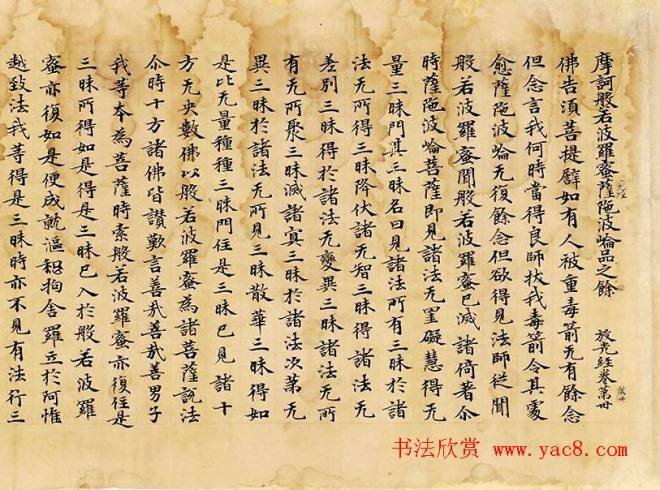 摩訶般若波羅蜜薩陁波崙品之餘 放光經卷第卅
佛告湏菩提譬如有人被重毒箭无有餘念
但念言我何時當得良師拔我毒箭令其處
愈薩陁波崙无復餘念但欲得見法師従聞
般若波羅蜜聞般若波羅蜜已滅諸倚著尒
時薩陁波崙菩薩即見諸法无罣礙慧得无
量三昧門其三昧名曰見諸法所有三昧於諸
法无所得三昧降伏諸无智三昧得諸法无
差別三昧得於諸法无變異三昧諸法无所
有无所聚三昧滅諸㝠三昧於諸法次第无
異三昧於諸法无所見三昧散華三昧得如
是比无量種種三昧門住是三昧已見諸十
方无央數佛以般若波羅蜜為諸菩薩說法
尒時十方諸佛皆讚歎言善㢤善㢤善男子
我等夲為菩薩時索般若波羅蜜亦復住是
三昧所得如是得是三昧已入於般若波羅
蜜亦復如是便成就漚惒拘舍羅立於阿惟
越致法我等得是三昧時亦不見有法行三
书法欣赏 www.yac8.com